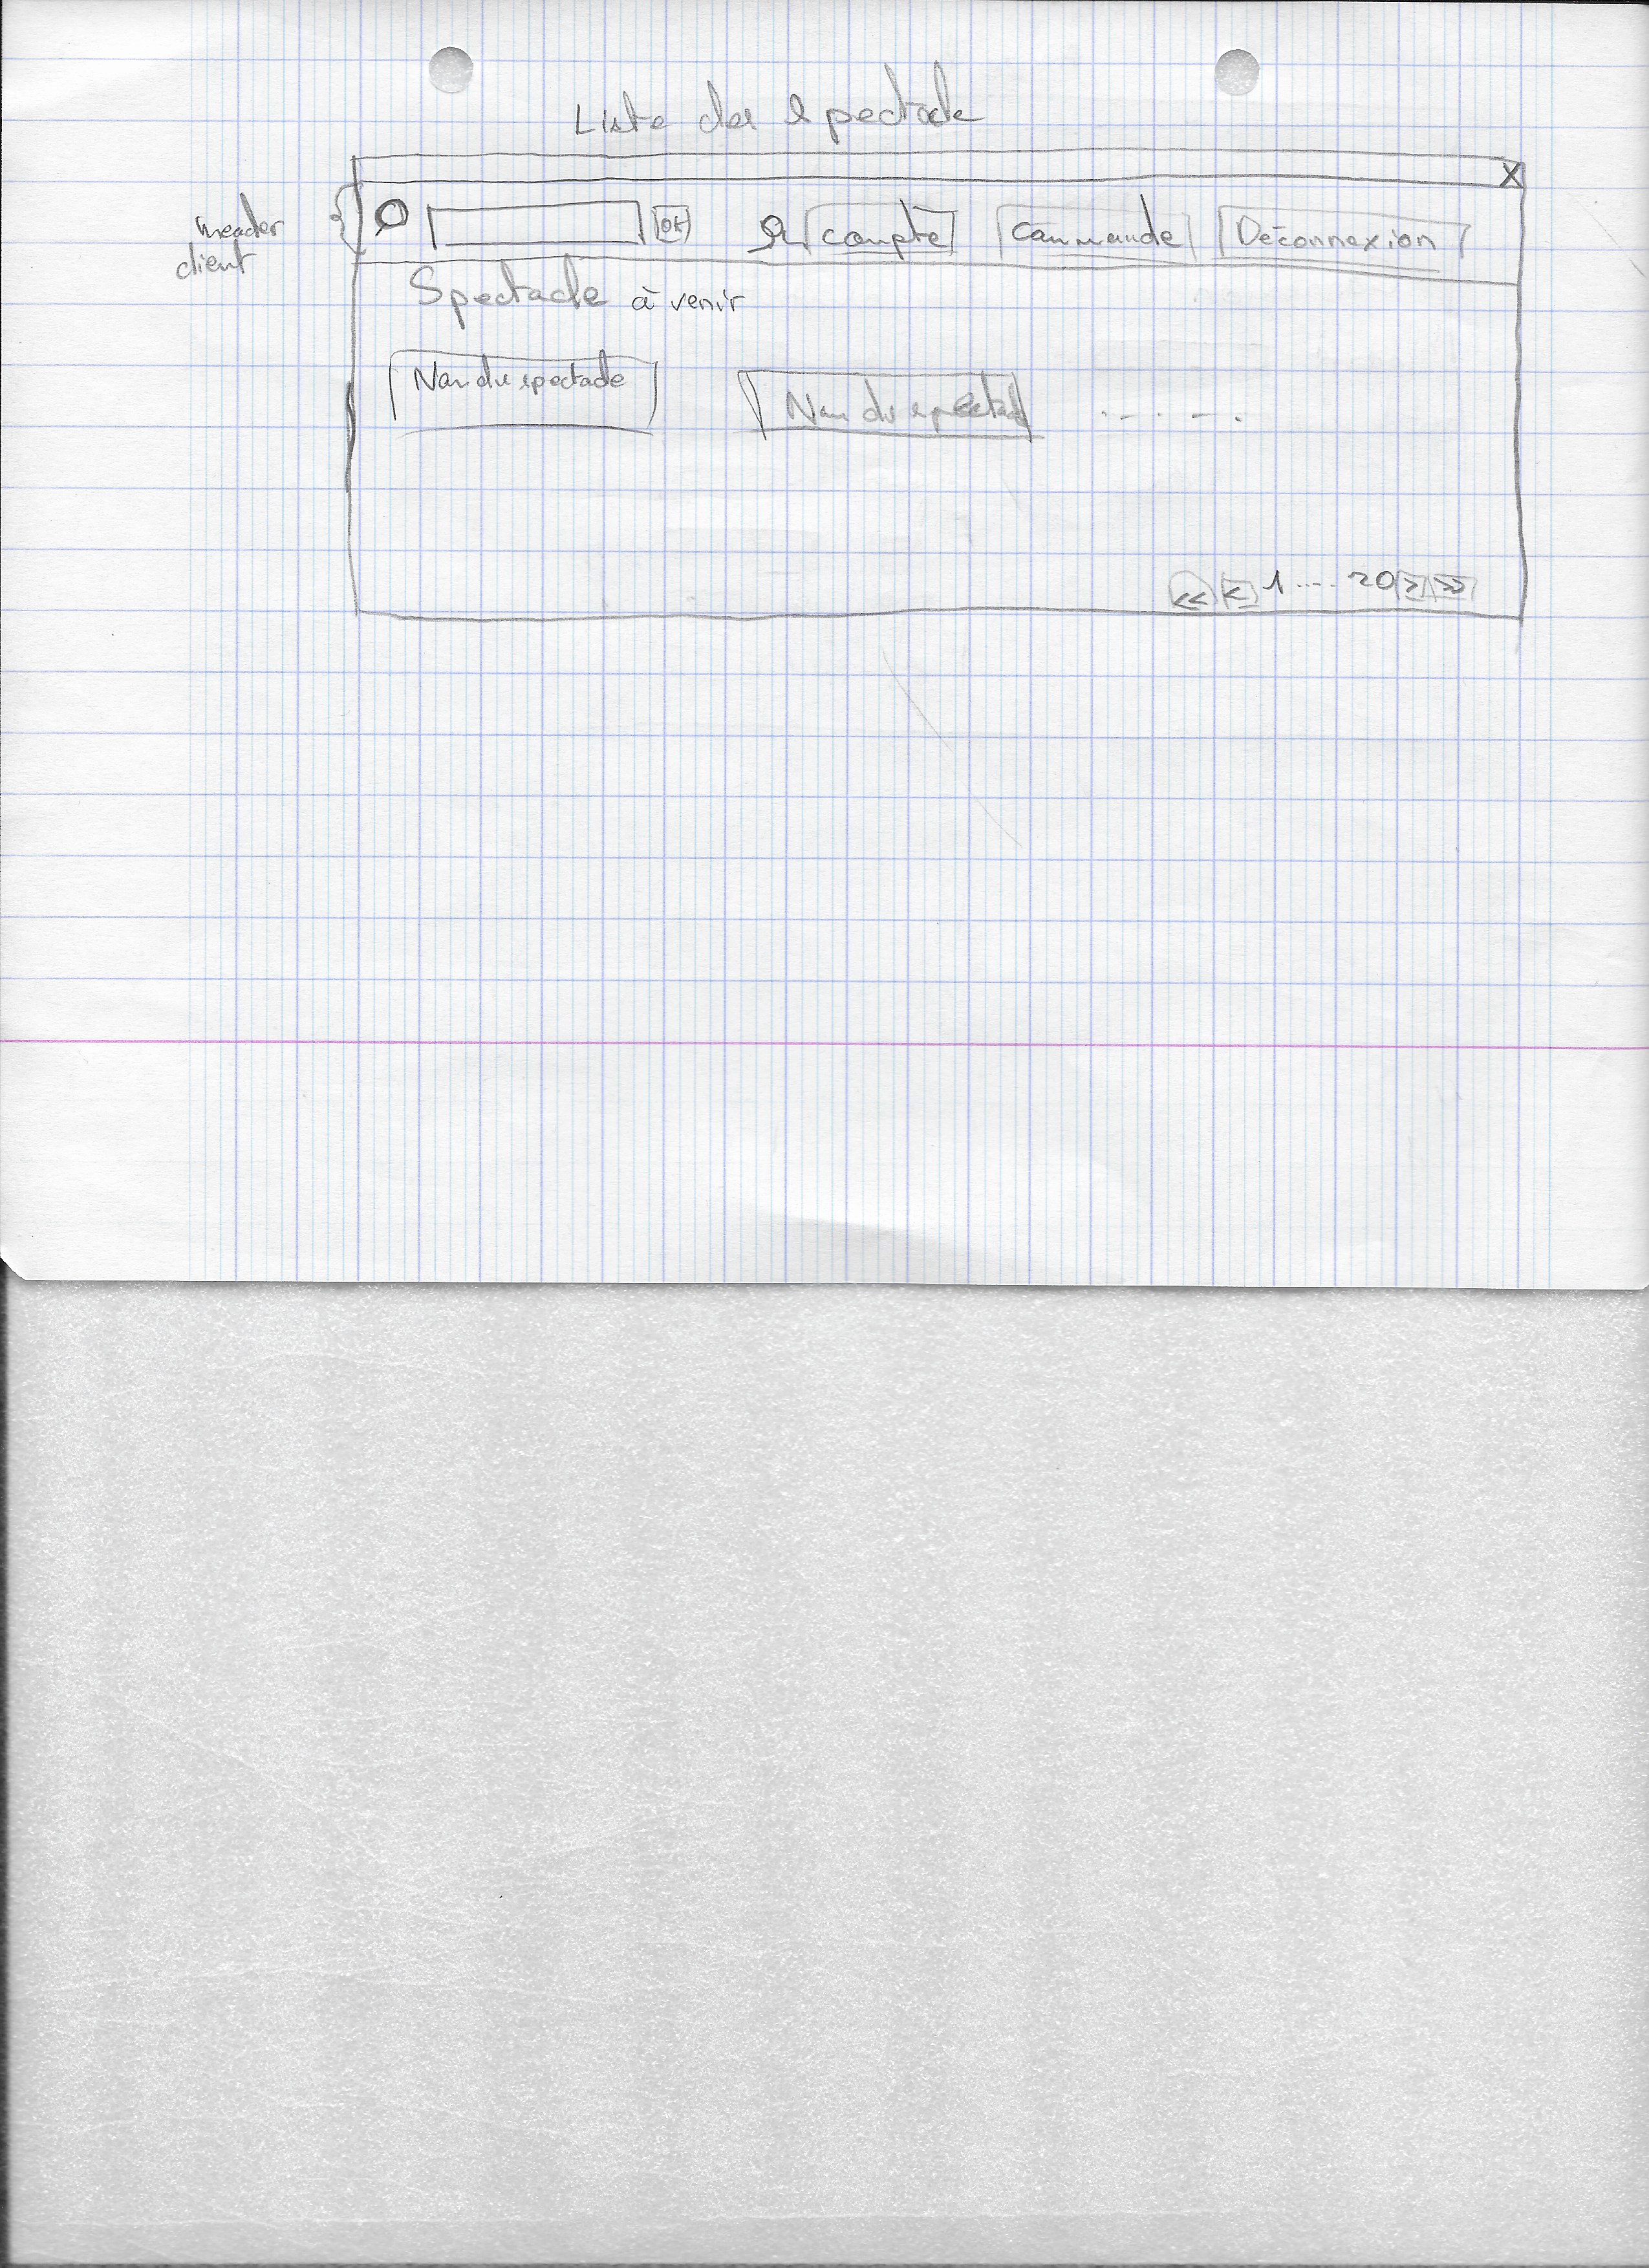 Liste des spectacle
X
header
client
OK compte Commande Déconnexion
Spectacle à venir
Nom du spectacle Nom du spectacle .......
<< < 1 .... 20 > >>